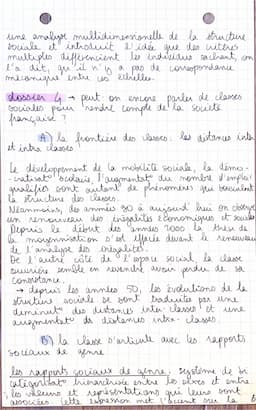 une analyse multidimensionnelle de la structure
sociale et introduit l'idée que des critères
multiples différencient les individus sachant, on
l'a dit, qu'il n'y a pas de correspondance
mécanique entre ces échelles.
dossier 4 → peut on encore parler de classes
sociales pour rendre compte de la société
française ?
A) la frontière des classes : les distances inter
et intra classes
Le développement de la mobilité sociale, la démo-
-cratisat° scolaire, l'augmentat° du nombre d'emplois
qualifiés sont autant de phénomènes qui bousculent
la structure des classes.
Néanmoins, des années 80 à aujourd'hui on observe
un renouveau des inégalités économiques et sociales
Depuis le début des années 2000 la thèse de
la moyennisation s'est effacée devant le renouveau
de l'analyse des inégalités.
De l'autre côté de l'espace social, la classe
ouvrière semble en revanche avoir perdue de sa
consistance.
→ depuis les années 50, les évolutions de la
structure sociale se sont traduites par une
diminut° des distances inter-classes et une
augmentat° des distances intra-classes.
B) la classe s'articule avec les rapports
sociaux de genre
les rapports sociaux de genre : système de bi
catégorisat° hiérarchisée entre les sexes et entre
les valeurs et représentations qui leurs sont
associées. cette expression met l'accent sur la